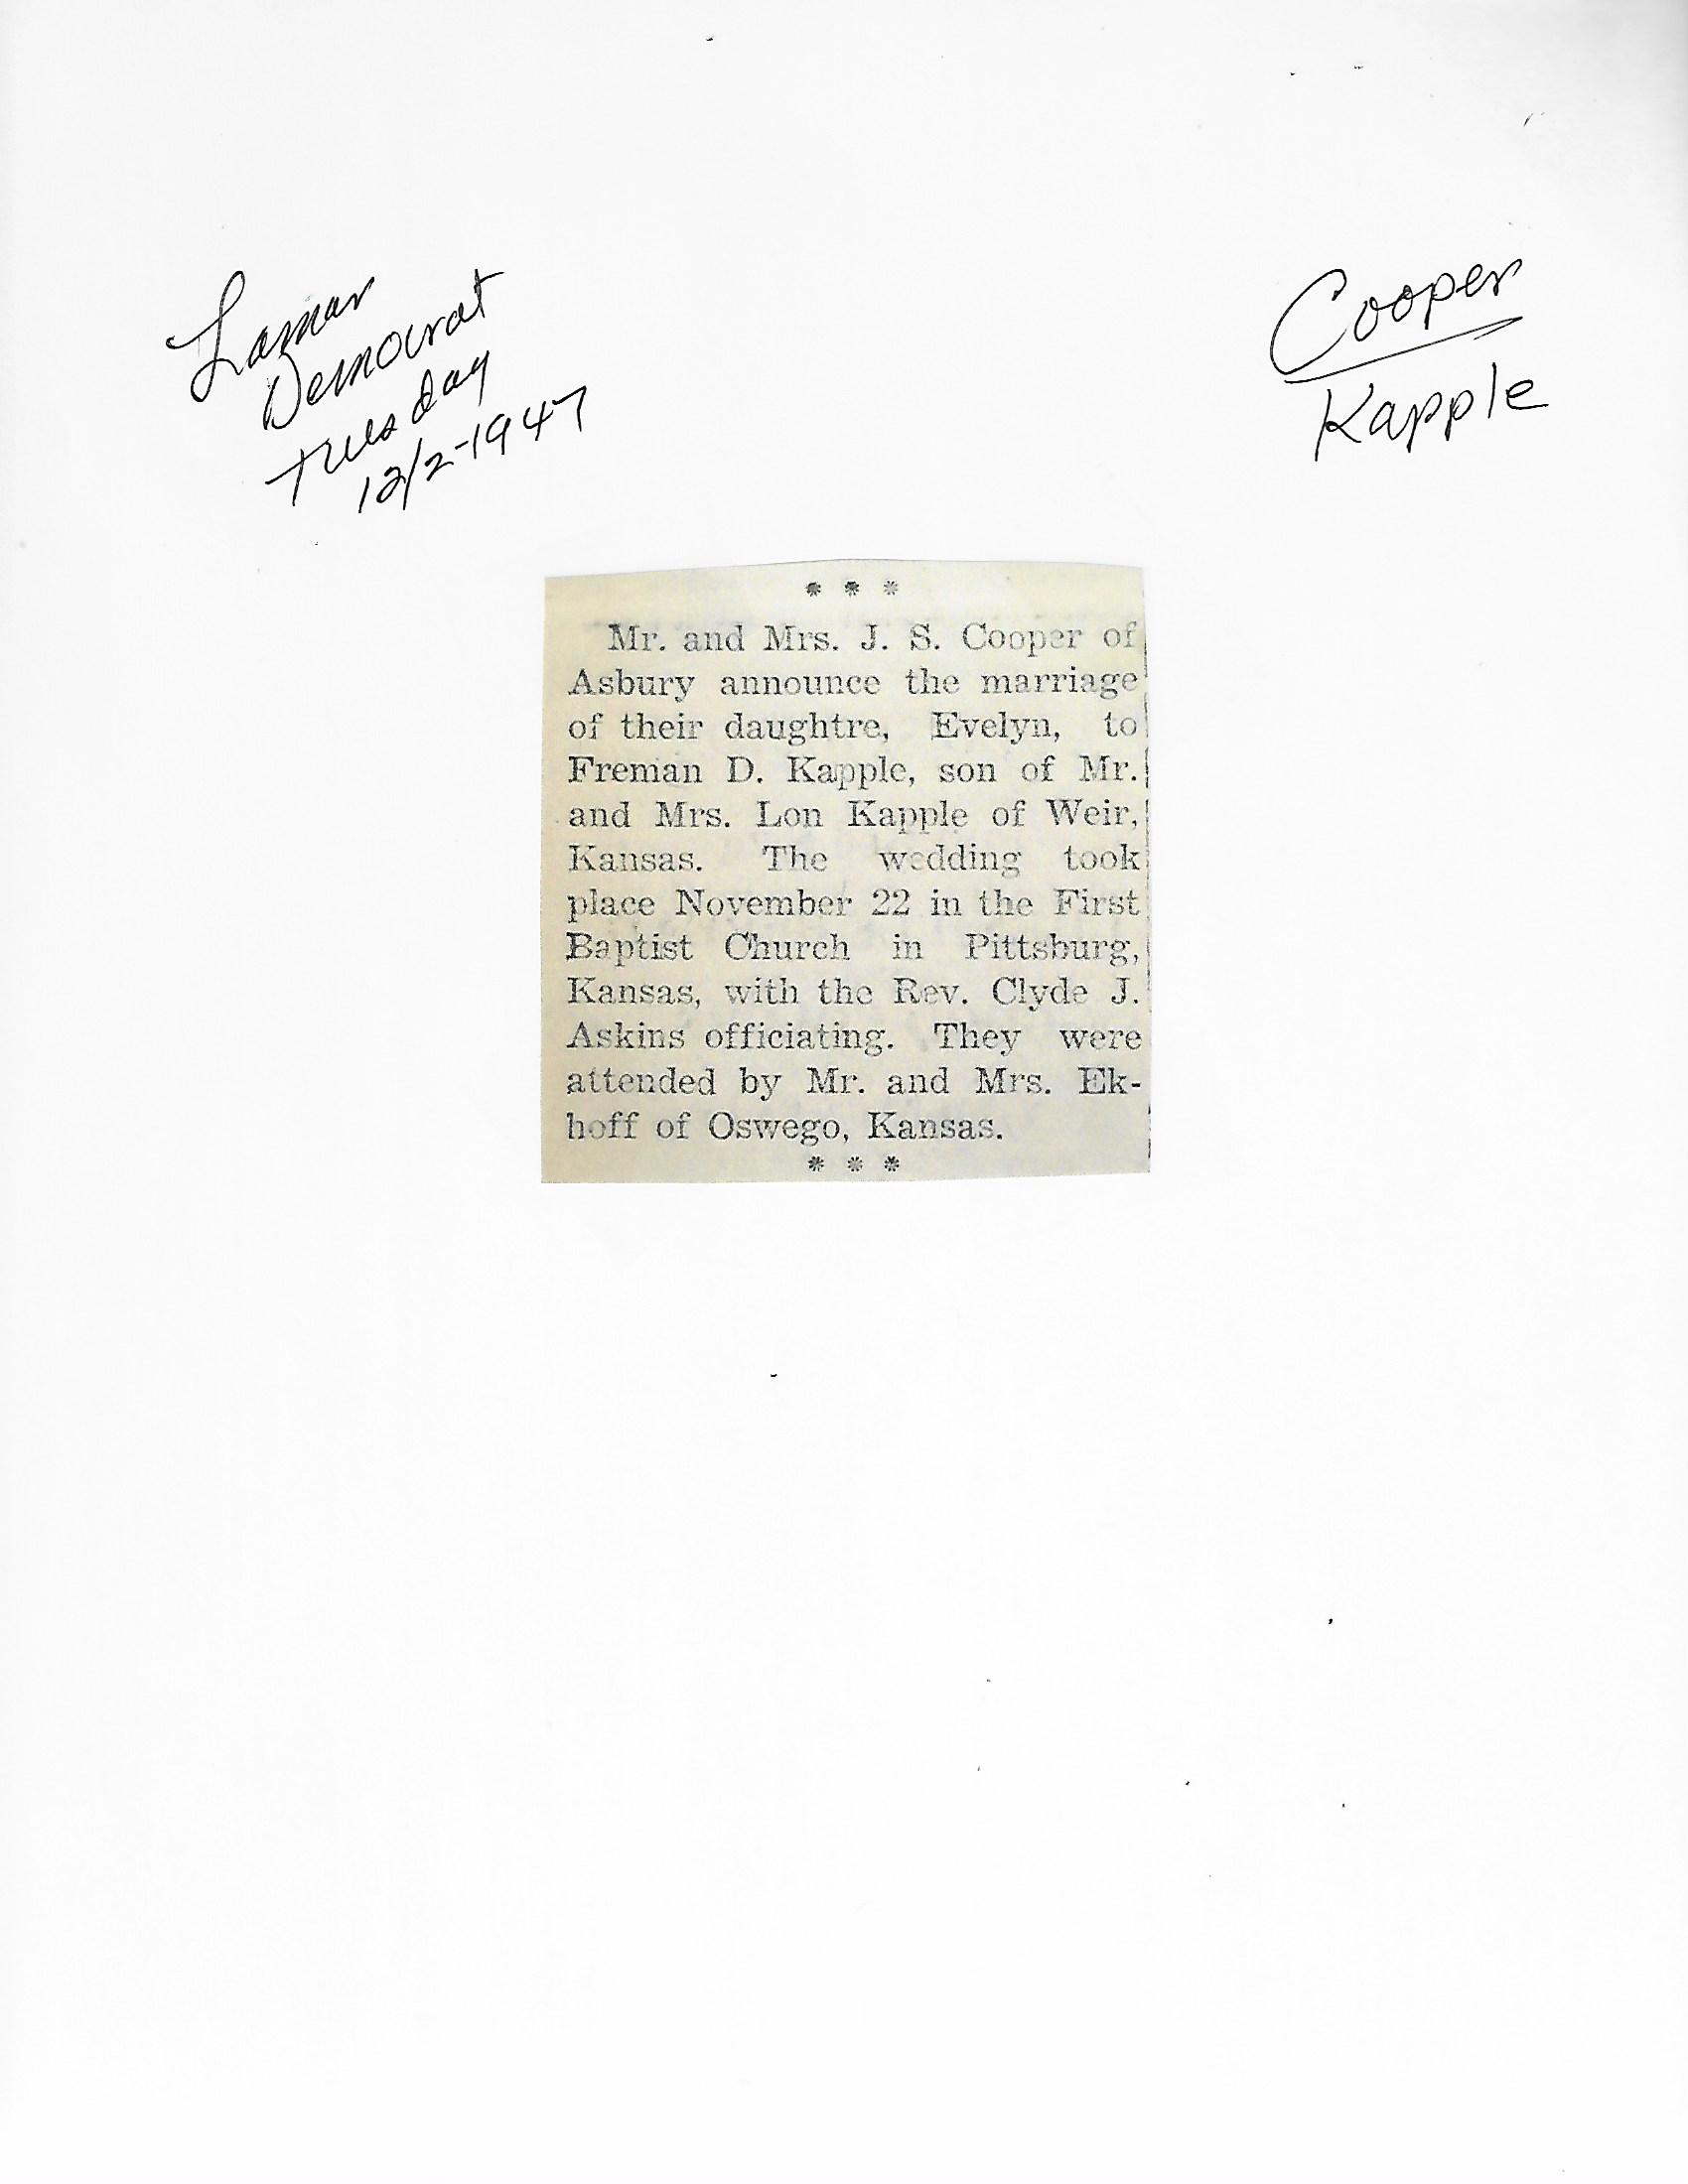 Lamar
Democrat
Tuesday
12/2-1947
Cooper
Kapple
* * *
Mr. and Mrs. J. S. Cooper of
Asbury announce the marriage
of their daughtre, Evelyn, to
Freman D. Kapple, son of Mr.
and Mrs. Lon Kapple of Weir,
Kansas. The wedding took
place November 22 in the First
Baptist Church in Pittsburg,
Kansas, with the Rev. Clyde J.
Askins officiating. They were
attended by Mr. and Mrs. Ek-
hoff of Oswego, Kansas.
* * *